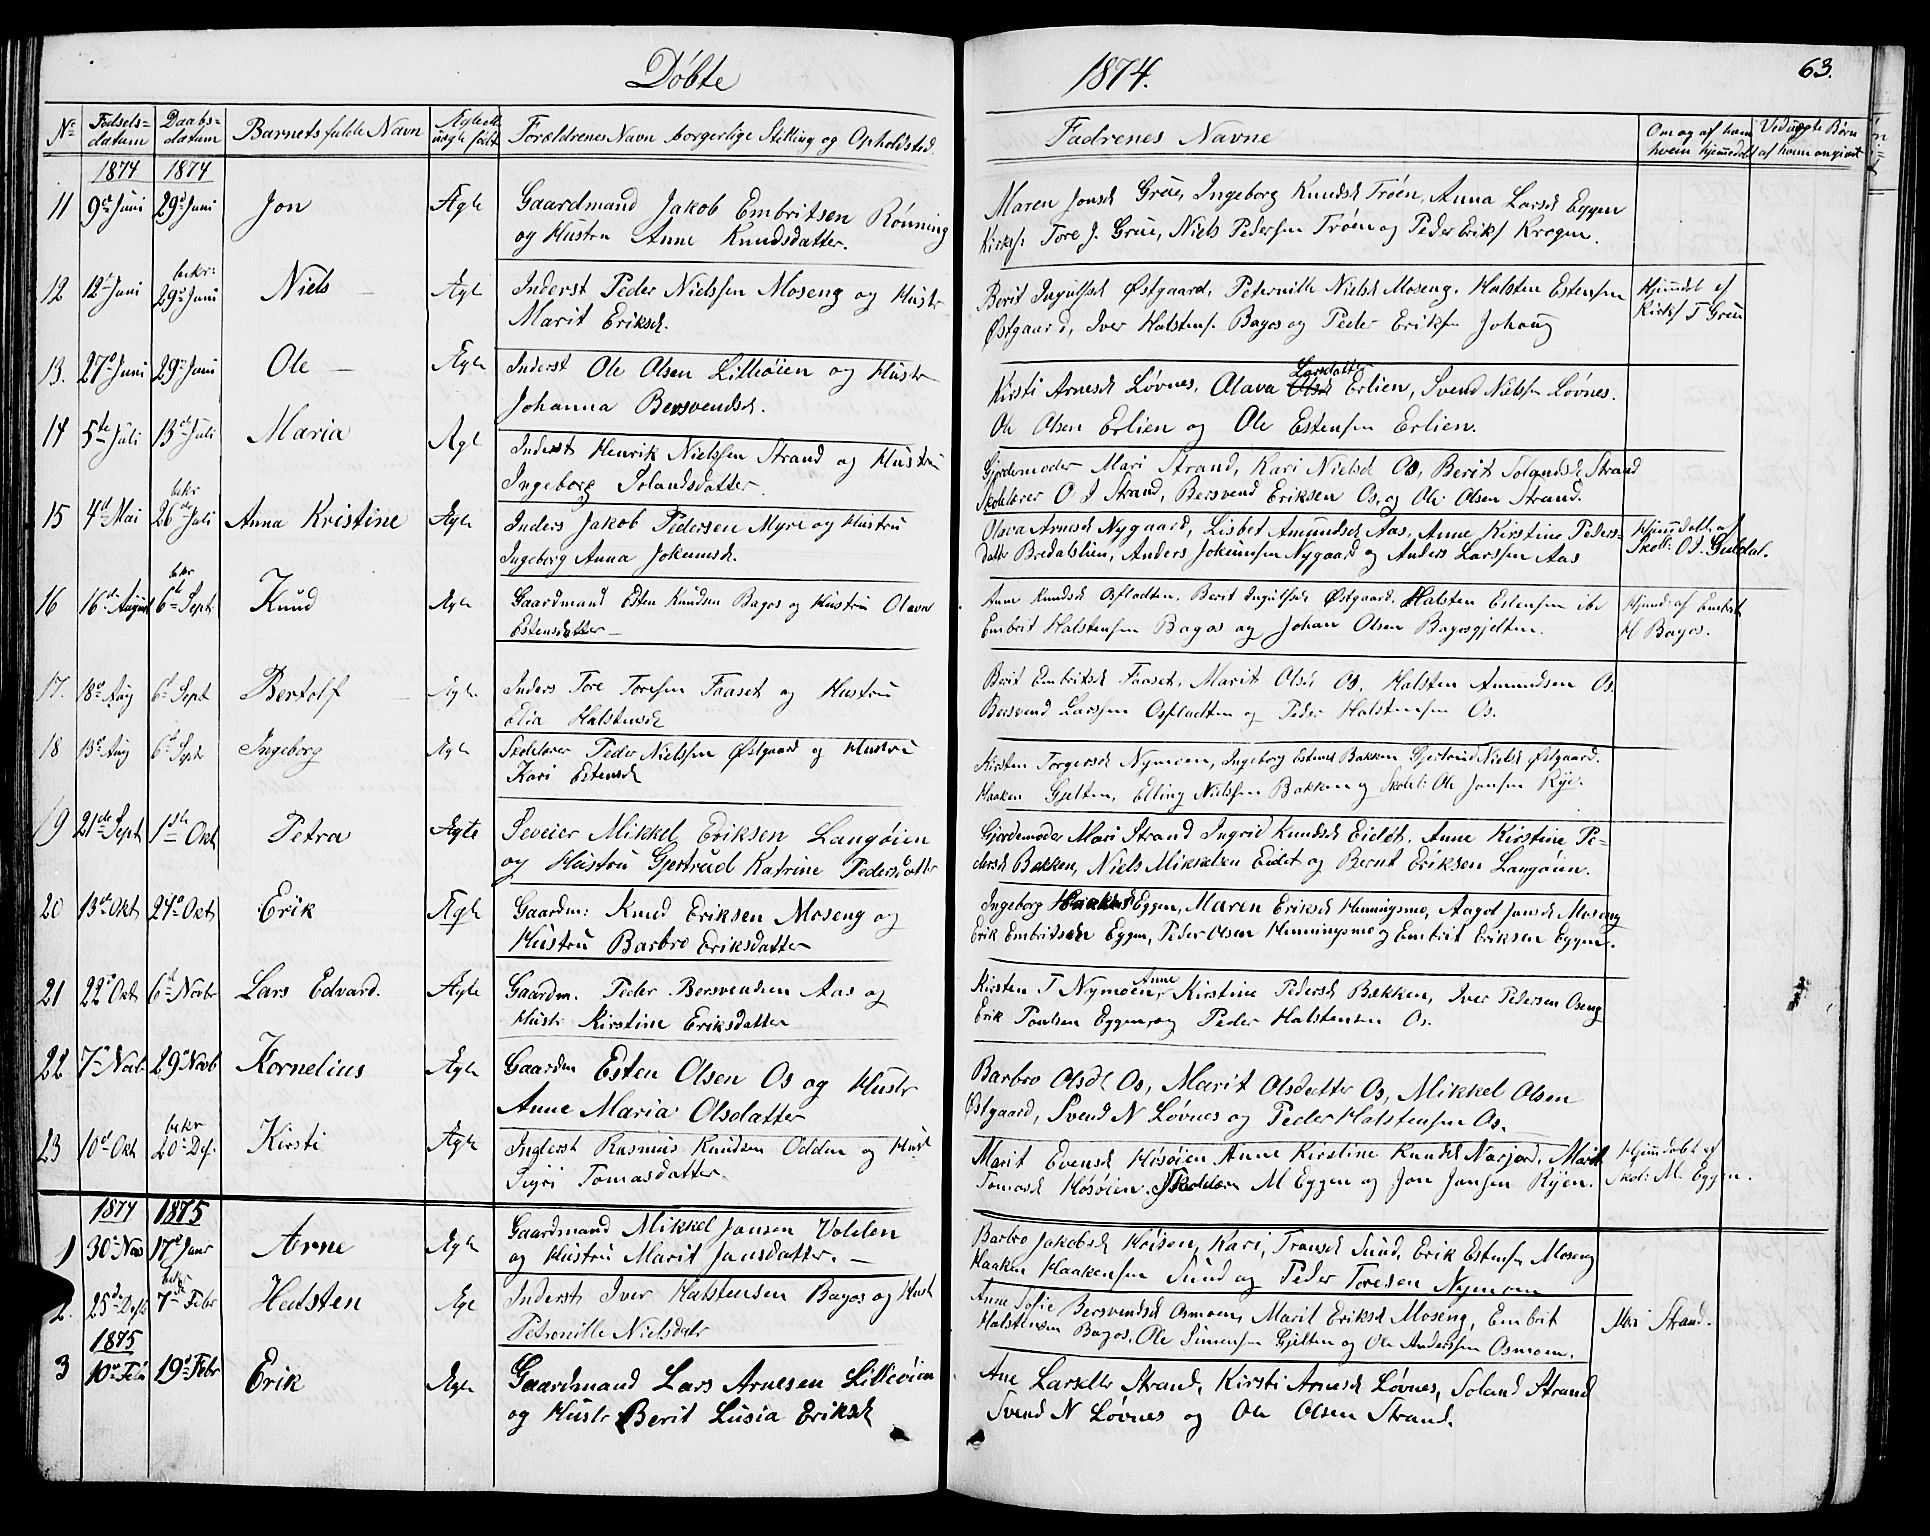 Døbte
1874.
63.
No Fødsels-datum Daabs-datum Barnets fulde Navn Ægte ell. uægte født Forældrenes Navn borgerlige Stilling og Opholdsted.
Fadrenes Navne
Om og af hvem hjemmedøbt
Ved uægte Børn af hvem angivet
1874 1874
11 9de Juni 29de Juni Jon Ægte Gaardmand Jakob Embritsen Rønning
og Hustru Anne Knudsdatter.
Maren Jonsd Grue, Ingeborg Knudsd Trøen, Anna Larsd Eggen
Kirks: Tore J. Grue, Niels Pedersen Trøen og Peder Eriks Krogen.
12 12te Juni bekr: 29de Juni Niels Ægte Inderst Peder Nielssen Moseng og Hustr
Marit Eriksd.
Berit Ingulfsd Østgaard, Peternille Nielsd Moseng. Halsten Estensen
Østgaard, Iver Halstens. Bagos og Peder Eriksen Johaug
Hjemdøbt af
Kirks T Grue
13. 27de Juni 29de Juni Ole Ægte Inderst Ole Olsen Lilleøien og Hustr
Johanna Bersvendsd.
Kirsti Arnesd Løvnes, Olava Larsdatter Erlien, Svend Nielssen Løvnes.
Ole Olsen Erlien og Ole Estensen Erlien.
14 5te Juli 13de Juli Maria Ægte Inderst Henrik Nielssen Strand og Hustru
Ingeborg Tolandsdatter.
Gjordemoder Mari Strand, Kari Nielsd Os, Berit Tolandsd Strand
Skolelærer O T Strand, Bersvend Eriksen Os, og Ole Olsen Strand.
15 4de Mai bekr 26de Juli Anna Kristine Ægte Inders Jakob Pedersen Myre og Hustru
Ingeborg Anna Jokumsd.
Olava Arnesd Nygaard, Lisbet Amundsd Aas, Anne Kirstine Peders-
datter Bredalslien, Anders Jokumsen Nygaard og Anders Larssen Aas
Hjemmdøbt af
Skoll: O. J. Guldal.
16 16de August bekr 6te Sept Knud Ægte Gaardmand Esten Knudsen Bagos og Hustru Olava
Estensdatter
Ane Knudsd Osfloøtten. Berit Ingulfsd Østgaard. Halsten Estensen ibd
Embrit Halstensen Bagos og Johan Olsen Bagosgjelten.
Hjemd: af Embrit
H Bagos.
17. 18de Aug 6te Sept Bertolf Ægte Inders Tore Toresen Faaset og Hustru
Elia Halstensd
Berit Embritsd Faaset, Marit Olsd Os. Halsten Amundsen Os.
Bersvend Larssen Osfloøtten og Peder Halstensen Os.
18 13de Aug 6te Sept Ingeborg Ægte Skolelærer Peder Nielssen Østgaard og Hustru
Kari Estensd
Kirsten Torgersd Nymoen, Ingeborg Estensd Bakken Gjertrud Nielsd Østgaard.
Haaken Gjelten, Elling Nielssen Bakken og Skolel: Ole Jonsen Rye.
19 21de Sept 1ste Okt Petra Ægte Seveier Mikkel Eriksen Langøien
og Hustru Gjertrud Katrine Pedersdatter
Gjordemoder Mari Strand Ingrid Knudsd Eidet, Anne Kirstine Pe-
dersd Bekken, Niels Mikkelsen Eidet og Bernt Eriksen Langøien.
20 13de Okt 24de Okt Erik Ægte Gaardm: Knud Eriksen Moseng og
Hustru Barbro Eriksdatter
Ingeborg Haakensd Eggen, Maren Eriksd Henningsmo, Aagot Jonsd Moseng
Erik Embritsen Eggen, Peder Olsen Henningsmo og Embrit Eriksen Eggen.
21 22de Okt 6te Novbr Lars Edvard. Ægte Gaardm. Peder Bersvendsen Aas og
Hustr Kirstine Eriksdatter
Kirsten T Nymoen, Anne Kirstine Pedersd Bækken, Iver Pedersen Oseng
Erik Paulsen Eggen, og Peder Halstensen Os.
22 7de Nov. 29de Novb Kornelius Ægte Gaardm Esten Olsen Os og Hustr
Anne Maria Olsdatter
Barbro Olsdt Os, Marit Olsdatter Os, Mikkel Olsen
Østgaard, Svend N Løvnes og Peder Halstensen Os.
23 10de Okt bekr 20de Des. Kirsti Ægte Inderst Rasmus Knudsen Odden og Hust
Sigri Tomasdatter.
Marit Evensd Høsøien Anne Kirstine Knudsd Narjord, Marit
Tomasd Høsøien. Skolelærer M Eggen og Jon Jonsen Ryen.
Hjemmdøbt af
Skol: M. Eggen.
1874 1875
1 30te Nov 17de Janr Arne Ægte Gaardmand Mikkel Jonsen Volden
og Hustru Marit Jonsdatter. —
Barbro Jakobsd Høisen, Kari, Tronsd Sund, Erik Estensen Moseng
Haaken Haakensen Sund og Peder Toresen Nymoen
2. 25de Des bekr 7de Febr Halsten Ægte Inderst Iver Halstensen Bagos og Hust
Petronille Nielsdatr
Anne Sofie Bersvendsd Osmoen, Marit Eriksd Moseng, Embrit
Halstensen Bagos, Ole Simensen Gjelten og Ole Anderssen Osmoen.
Mari Strand.
1875
3 10de Feb 19de Febr Erik Ægte Gaardmand Lars Arnesen Lilleøien
og Hustr Berit Lusia Eriksd
Ane Larsdtr Strand, Kirsti Arnesd Løvnes, Toland Strand
Svend N Løvnes og Ole Olsen Strand.